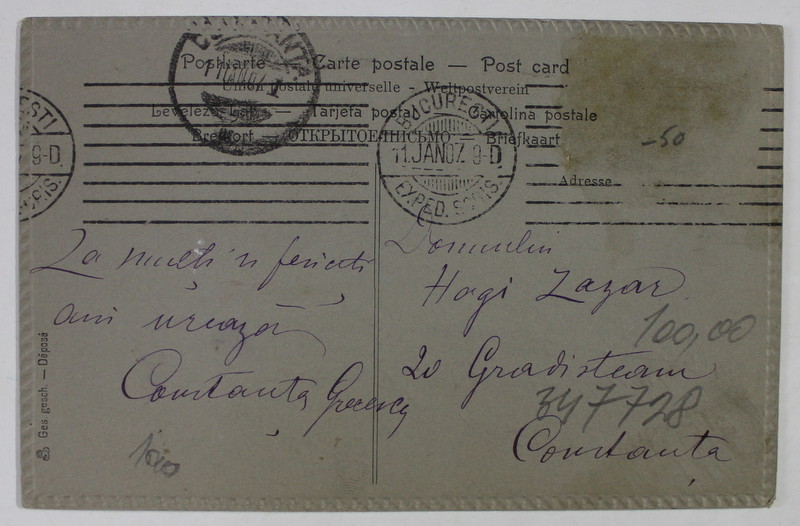 Postkarte — Carte postale — Post card
Union postale universelle - Weltpostverein
Tarjeta postal — Cartolina postale
ОТКРЫТОЕ ПИСЬМО — Briefkaart
Adresse
CONSTANTA
BUCURESTI
11.JAN07. 9-D.
EXPED. SCRIS.
ESTI
9-D.
CRIS.
-50
La mulți și fericiți
ani urează
Constanța
Domnului
Hagi Lazar
100,00
Gradisteanu
347728
Constanța
100
Ges gesch. — Déposé